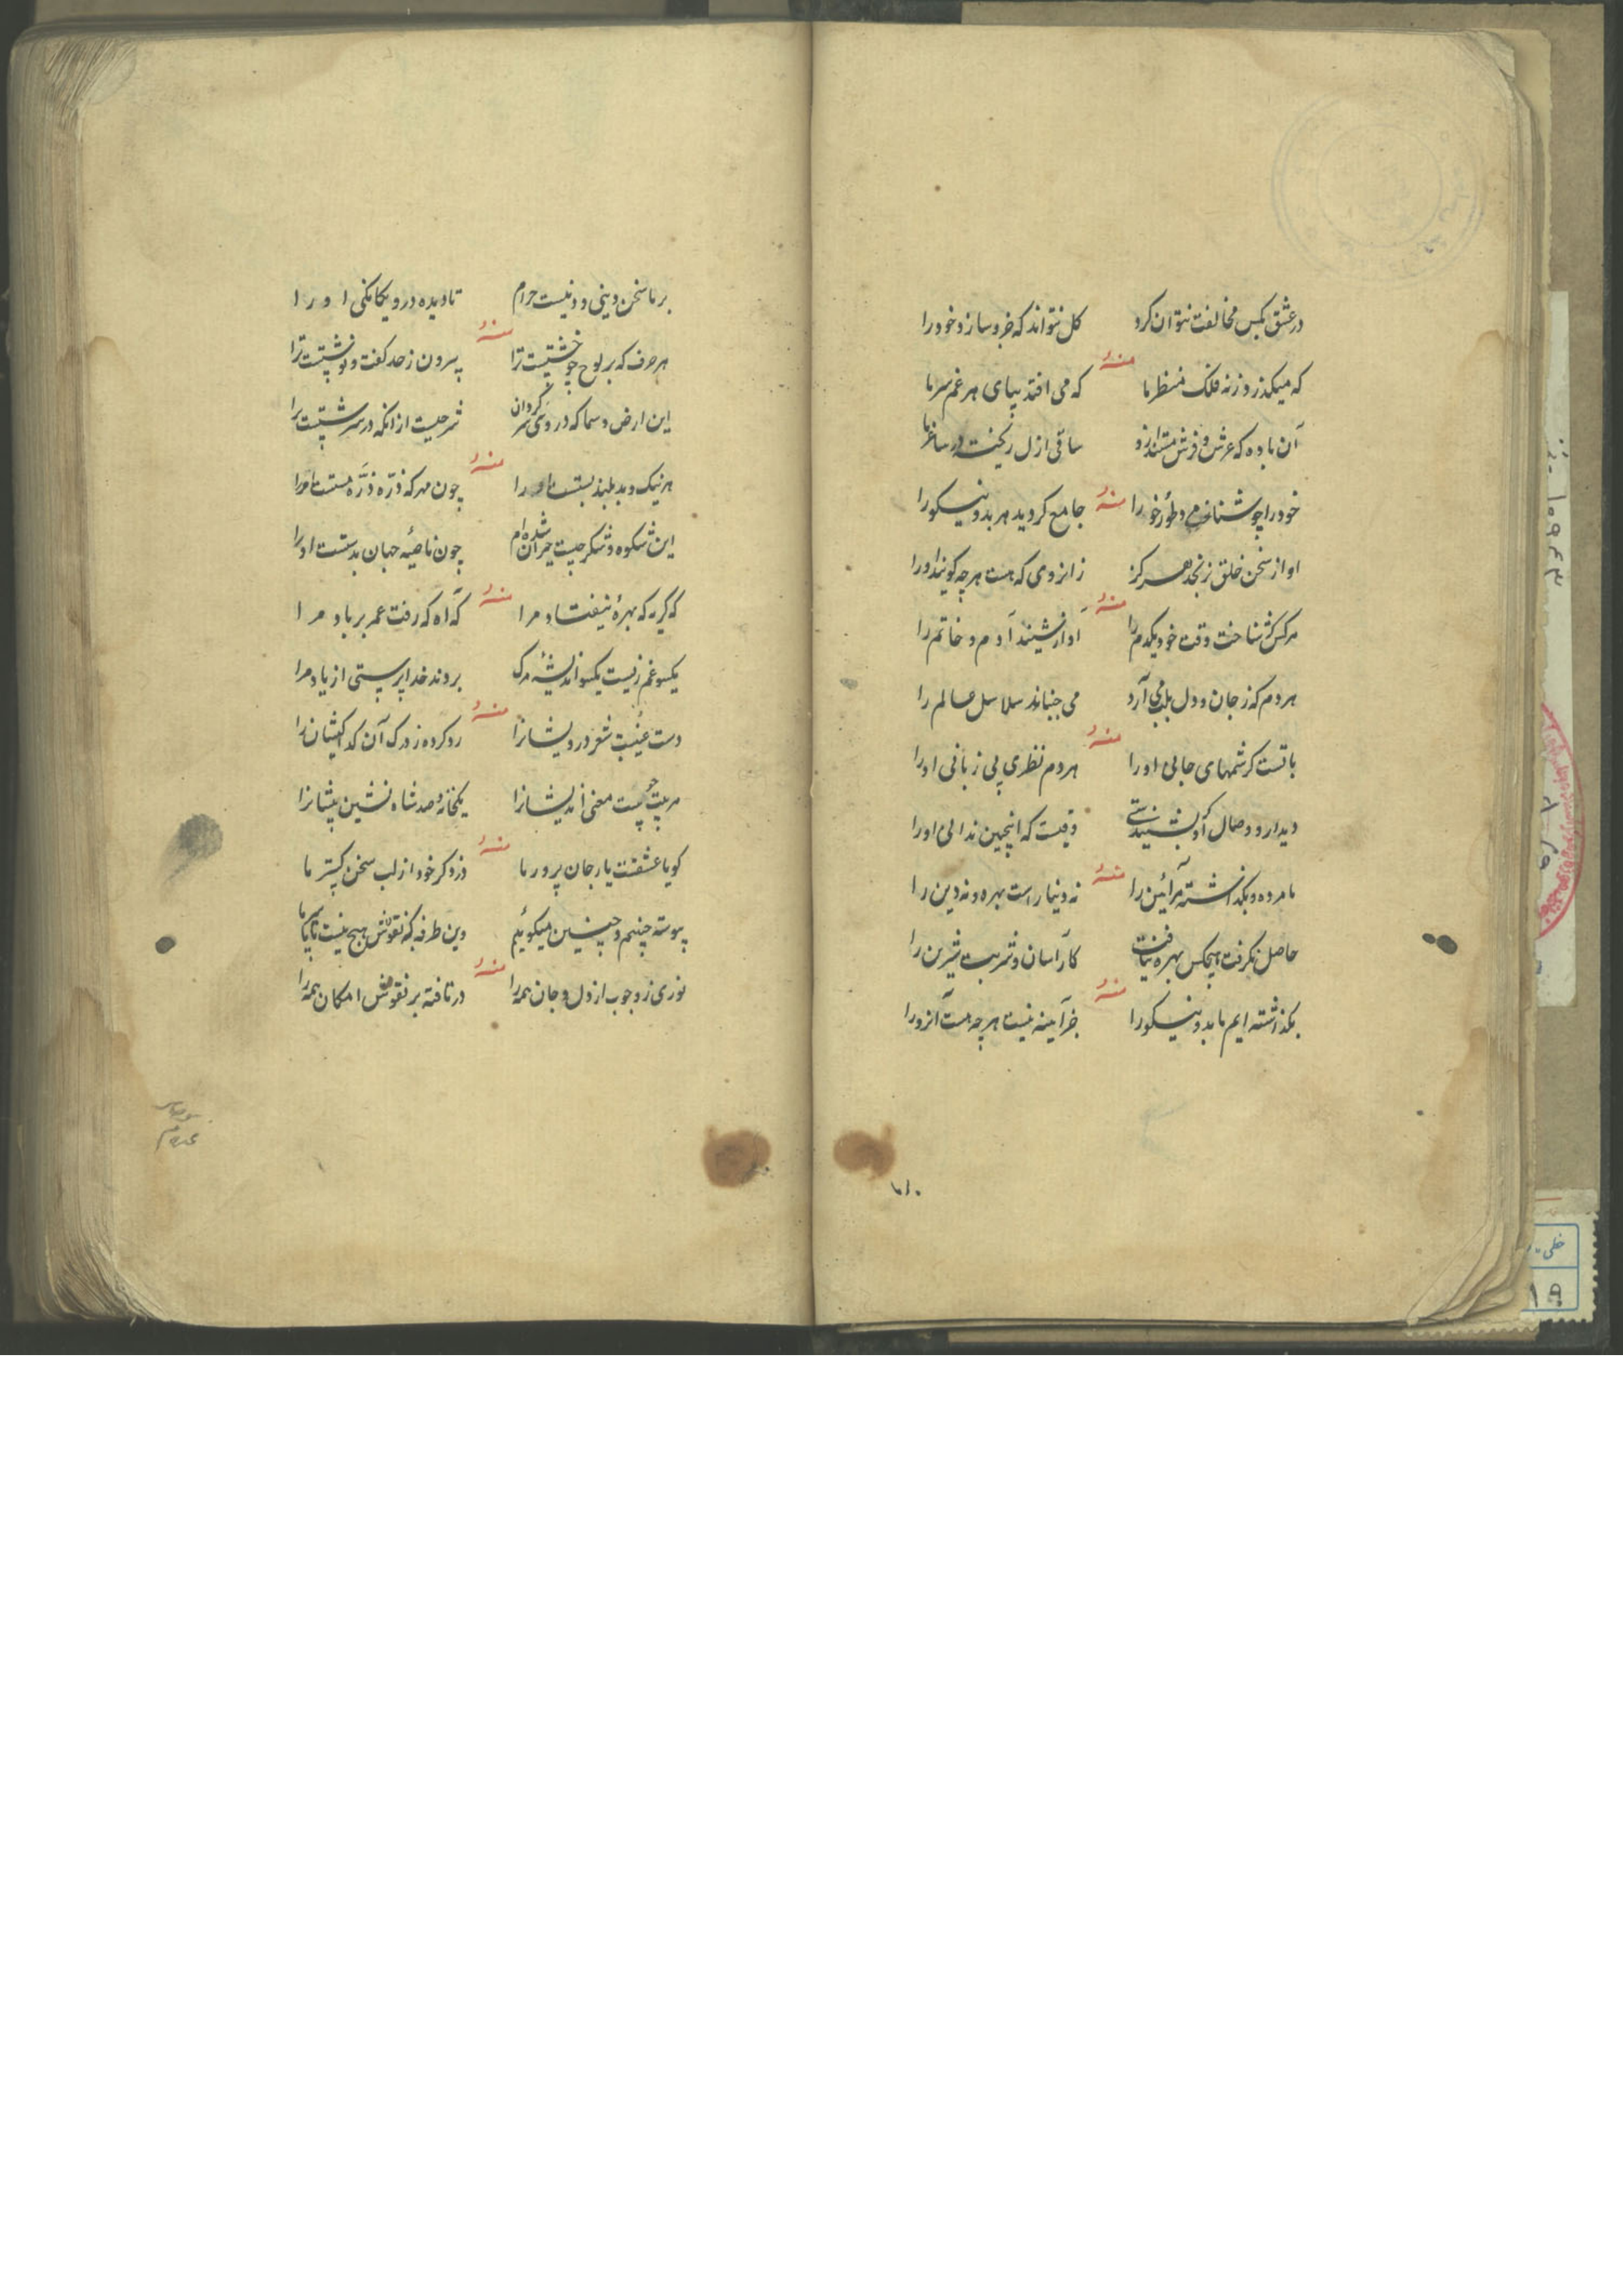 در عشق بکس مخالفت نتوان کرد کل نتواند که جزو سازد خود را
منه
که میکذرد ز نه فلک منظر ما که می افتد بپای هر غم سر ما
آن باده که عرش و فرش مستند ازو ساقی ازل ریخت در ساغر ما
منه
خود را چو شناختی و خود را جامع کردید هر بد و نیکو را
او از سخن خلق نرنجد هرکز زانروی که هست هر چه کویند او را
منه
هر کس نشناخت وقت خود یکدم را آواز نشیند آدم و خاتم را
هر دم که ز جان و دل می آرد می جنباند سلاسل عالم را
منه
با تست کرشمهای حالی او را هر دم نظری بی زبانی او را
دیدار و وصال او وقتیست که اینچنین ندا لی او را
منه
ما مرده و بکذاشته آئین را نه دنیا راست بهره و نه دین را
حاصل نکرفت هیچکس بهره نیافت کار آسان و شربت شیرین را
منه
بکذاشته ایم ما بد و نیکو را جز آینه نیست هر چه هست آنرو را
بر ما سخن دینی و دنیست حرام نادیده درو یکانکی او را
منه
هر حرف که بر لوح چو خشتیست ترا بیرون ز حد کفت و نوشتیست ترا
این ارض و سما که در وی سر کردان شرحیست از انکه در سرشتیست ترا
منه
هر نیک و بد بلند پستست او را چون مهر که ذره ذره هستست او را
این شکوه و شکر چیست حیران شده ام چون ناصیه جهان بدستست او را
منه
که کریه که بهره نیفتاد مرا که آه که رفت عمر بر باد مرا
یکسو غم زیست یکسو اندیشه مرک بردند خدا پرستی از یاد مرا
منه
دست غیبیست شعر درویشانرا رد کرده ز درک آن کداکیشانرا
هر بیت معنی اندیشانرا یکخانه صد شاه نشین پیشانرا
منه
کویا عشقت یار جان پرور ما در ذکر خود از لب سخن کستر ما
پیوسته چنینم و چنین میکوئیم وین طرفه که نقوش هیچ نیست
منه
نوری ز وجوب از دل و جان همه را در تافته بر نقوش امکان همه را